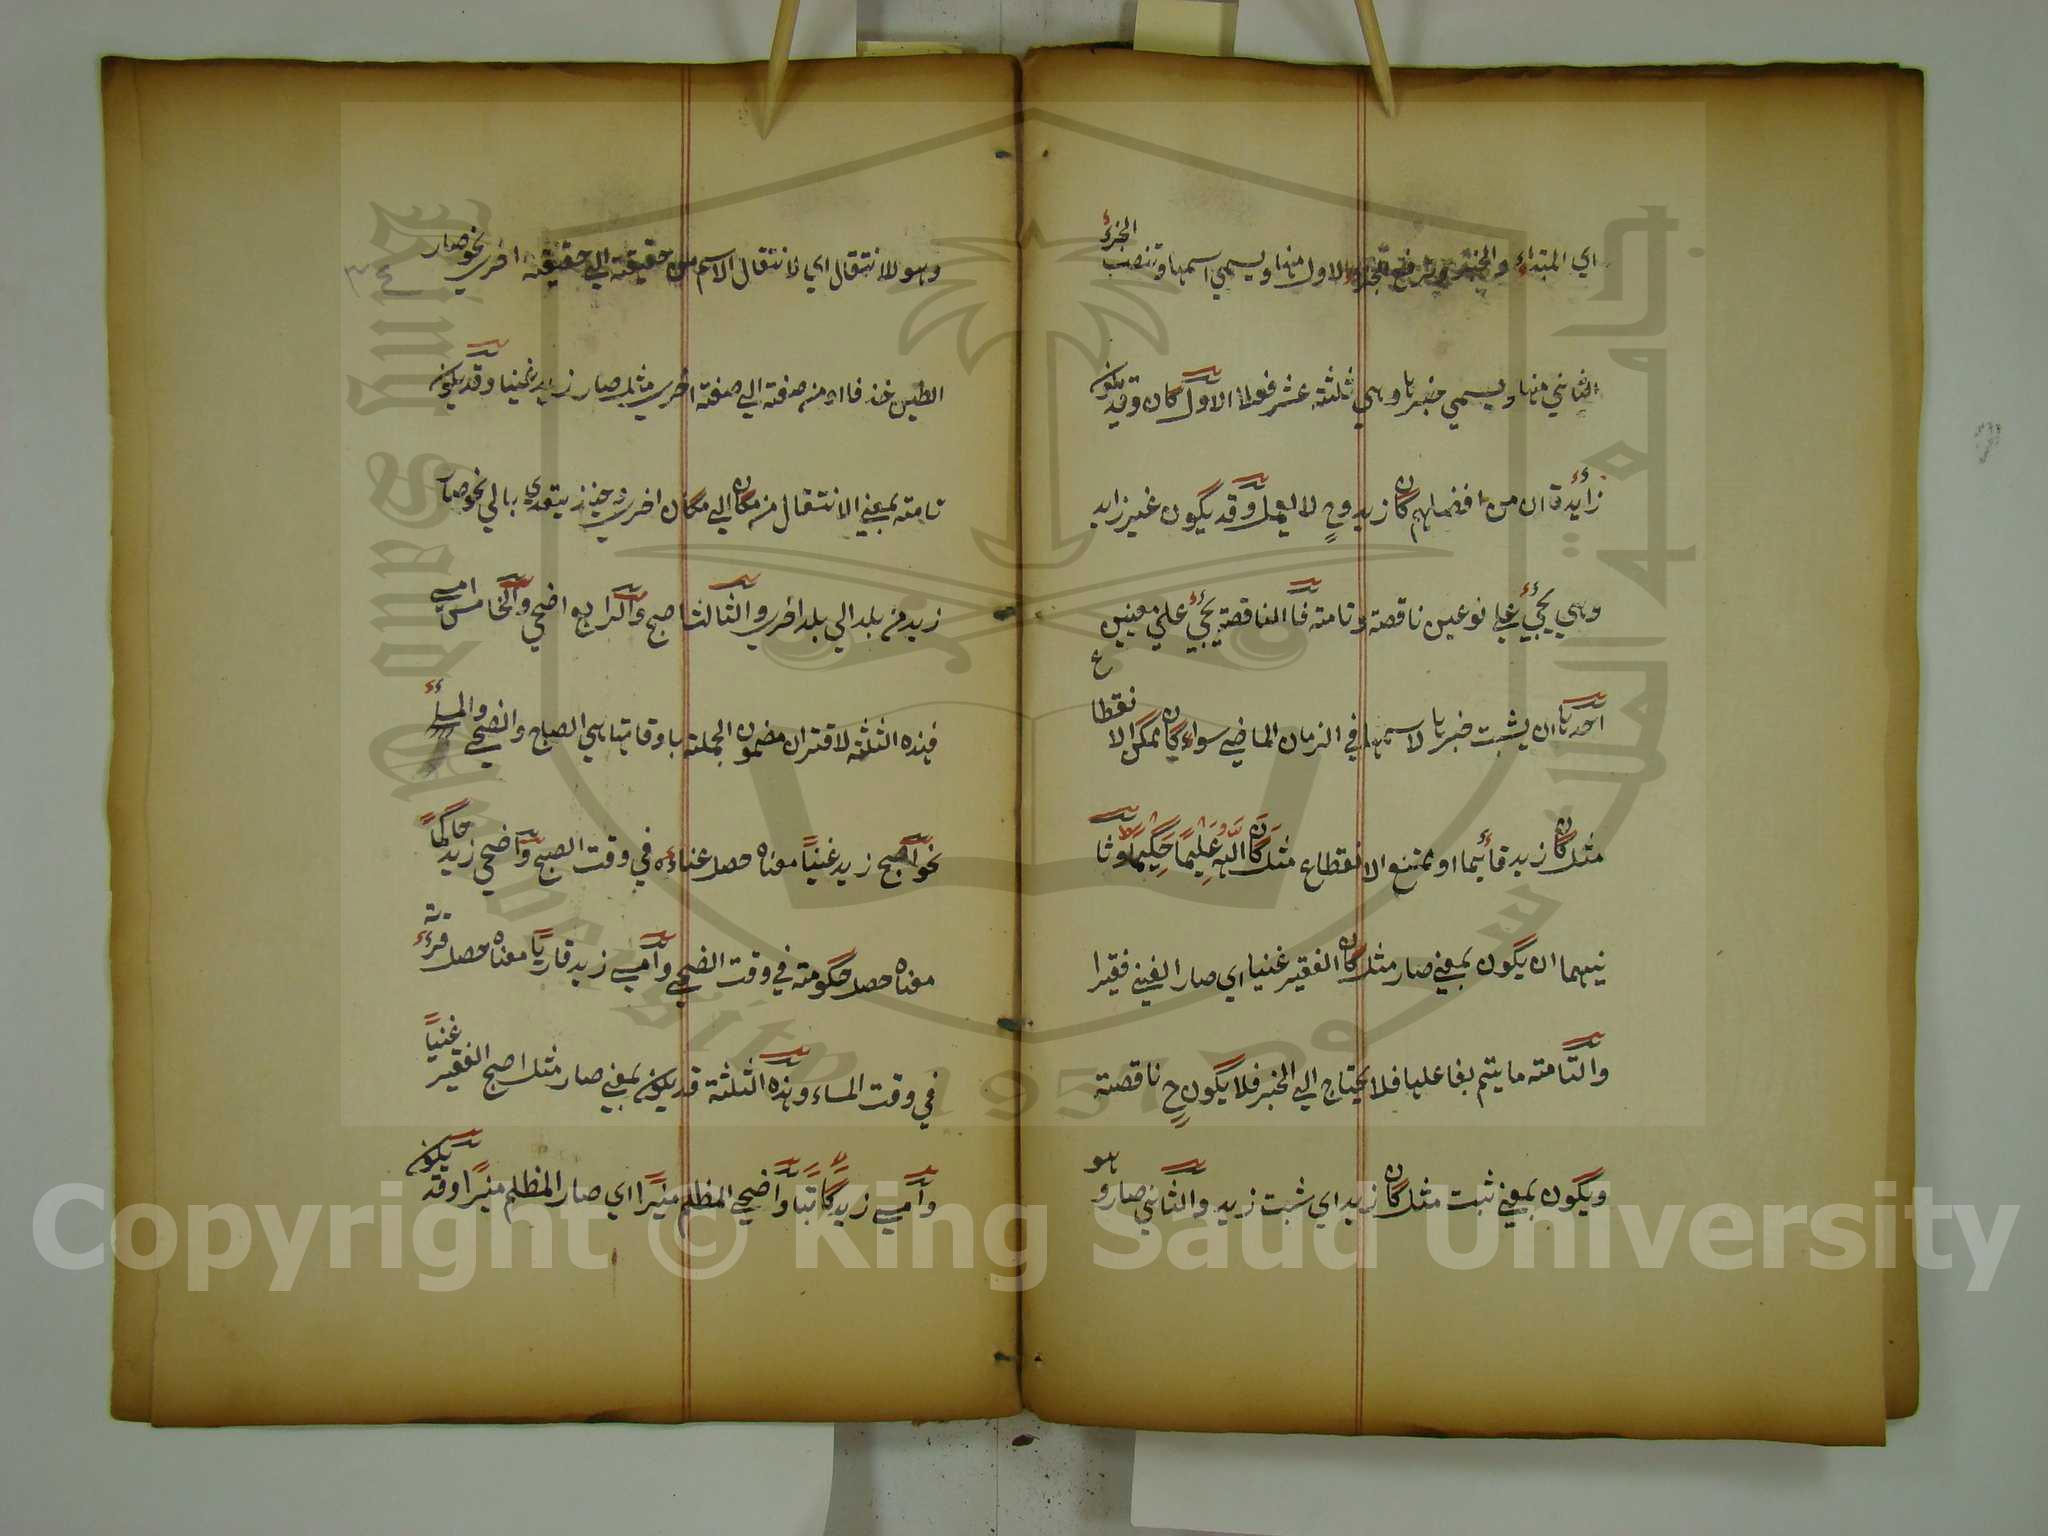 اي المبتداء والخبر وترفع الجزء الاول منها ويسمي اسمها وتنصب الجزء
الثاني منها ويسمي خبرها وهي ثلثة عشر فعلا الاول كان وقد يكون
زائدة ان من افضلهم كان زيد وح لا يعمل وقد يكون غير زايد
وهي يجيئ علي نوعين ناقصة وتامته فاالناقصة يجيئ علي معنيين
احدها ان يثبت خبرها لاسمها في الزمان الماضي سواء كان ممكن الا نقطاع
مثل كان زيد قائيما او ممتنع الانقطاع مثل كَانَ اللهُ عَلِيمًا حَكِيمًا وثا
نيهما ان يكون بمعني صار مثل كان الفقير غنيا اي صار الغني فقيرا
والتامته ما يتم بفاعلها فلا يحتاج الي الخبر فلا يكون ح ناقصته
ويكون بمعني ثبت مثل كان زيد اي ثبت زيد والثاني صار و هو
وهو للانتقال اي لانتقال الاسم من حقيقته الي حقيقته اخري نحو صار
الطين خذفا او من صفته الي صفته اخري مثل صار زيد غنيا وقد يكون
تامته بمعني الانتقال من مكان الي مكان اخري وحينئذ يتعدي بالي نحو صار
زيد من بلد الي بلد اخري والثالث اصبح والرابع اضحي والخامس امسي
فهذه الثلثة لاقتران مضمون الجملته باوقاتها هي الصباح والضحي والمسأ
نحو اصبح زيد غنيًا معناه حصل غناءه في وقت الصبح واضحي زيد حاكمًا
معناه حصل حكومته في وقت الضحي وامسي زيد قاريًا معناه حصل قرءته
في وقت المساء وهذه الثلثة قد يكون بمعني صار مثل اصبح الفقير غنيًا
وامسي زيد كاتبًا واضحي المظلم منيرًا اي صار المظلم منيرًا وقد يكون
٣٤
King Saud University
1957
جامعة الملك سعود
Copyright © King Saud University